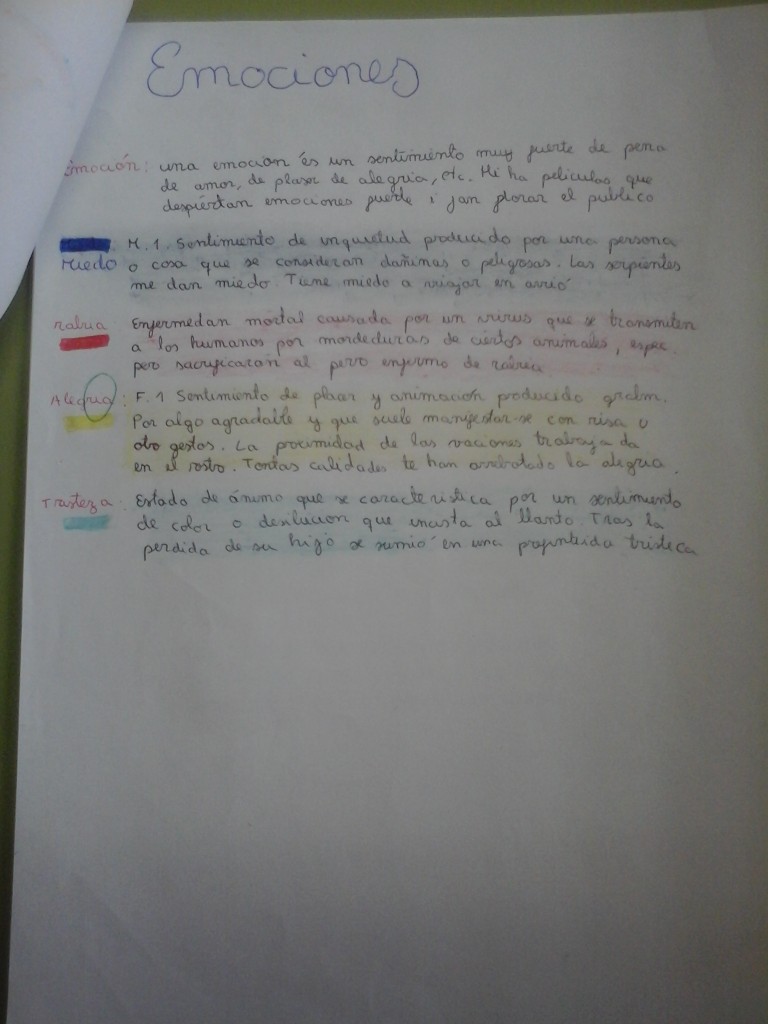 Emociones
Emoción: una emoción és un sentimiento muy fuerte de pena
de amor, de plaser de alegria, etc. Hi ha peliculas que
despiértan emociones fuerte i fan plorar el publico
Miedo M.1. Sentimiento de inquietud producido por una persona
o cosa que se consideran dañinas o peligrosas. Las serpientes
me dan miedo. Tiene miedo a viajar en avió
rabia Enfermedan mortal causada por un virus que se transmiten
a los humanos por mordeduras de ciertos animales, espec.
pero sacrificaran al pero enfermo de rabia
Alegria: F.1 Sentimiento de placer y animacion producido gralm.
Por algo agradable y que suele manifestar-se con risa u
otro gestos. La proximidad de las vaciones trabaja da
en el rostro. Tontas calidades te han arrebatado la alegria.
Tristeza: Estado de ánimo que se caracteristica por un sentimiento
de color o desilucion que incasta al llanto. Tras la
perdida de su higo se sumió en una tristeca